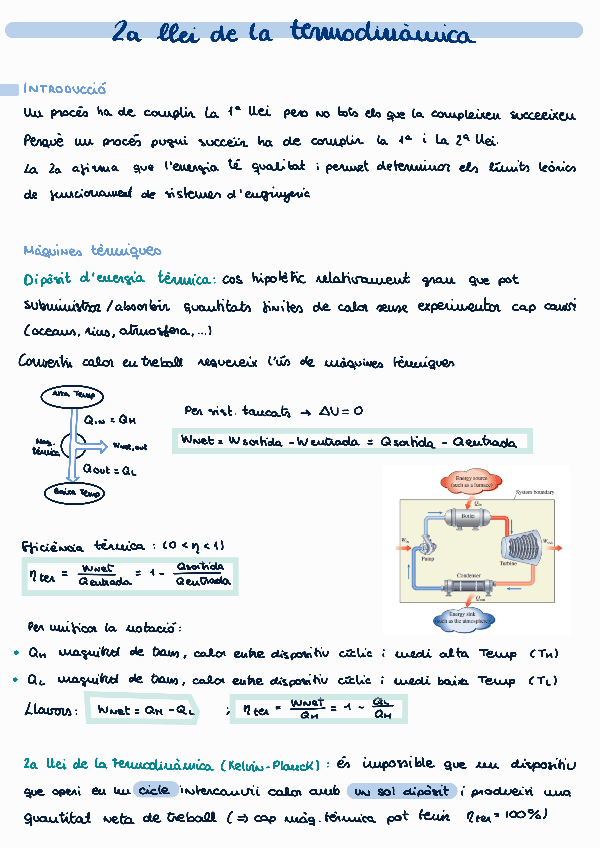 2a llei de la termodinàmica
INTRODUCCIÓ
Un procés ha de complir la 1ª llei però no tots els que la compleixen succeeixen
Perquè un procés pugui succeir ha de complir la 1ª i la 2ª llei.
La 2a afirma que l'energia té qualitat i permet determinar els límits teòrics
de funcionament de sistemes d'enginyeria
Màquines tèrmiques
Dipòsit d'energia tèrmica: cos hipotètic relativament gran que pot
subministrar/absorbir quantitats finites de calor sense experimentar cap canvi
(oceans, rius, atmosfera, ...)
Convertir calor en treball requereix l'ús de màquines tèrmiques
Alta Temp
Qin = QH
Màq. tèrmica
Wnet,out
Qout = QL
Baixa Temp
Per sist. tancats → ΔU = 0
Wnet = Wsortida - Wentrada = Qsortida - Qentrada
Energy source
(such as a furnace)
System boundary
Qin
Boiler
Win
Pump
Wout
Turbine
Condenser
Qout
Energy sink
(such as the atmosphere)
Eficiència tèrmica: (0 < η < 1)
ηter = Wnet / Qentrada = 1 - Qsortida / Qentrada
Per unificar la notació:
• QH magnitud de trans, calor entre dispositiu cíclic i medi alta Temp (TH)
• QL magnitud de trans, calor entre dispositiu cíclic i medi baixa Temp (TL)
Llavors: Wnet = QH - QL ; ηter = Wnet / QH = 1 - QL / QH
2a llei de la termodinàmica (Kelvin-Planck): és impossible que un dispositiu
que operi en un cicle intercanvii calor amb un sol dipòsit i produeixi una
quantitat neta de treball (⇒ cap màq. tèrmica pot tenir ηter = 100%)